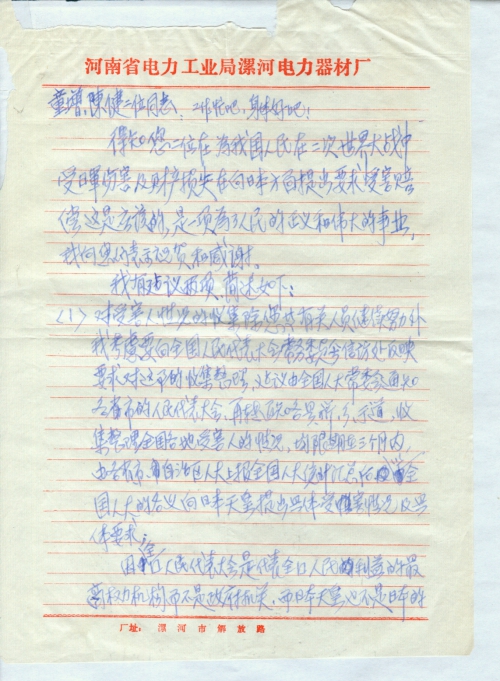 河南省电力工业局漯河电力器材厂
童增、陳健二位同志：工作忙吧，身体好吧！
得知您二位在为我国人民在二次世界大战中
受日軍伤害及财产损失在向日本方面提出要求受害赔
偿这是应该的，是一项为了人民的正义和伟大的事业，
我向您们表示祝贺和感谢。
我有建议两项，简述如下：
〈1〉对受害人情况的收集除您
我考虑要向全国人民代表大会常务委员会信访处反映
要求对这 的收集整理，建议由全国人大常委会通知
各省市的人民代表大会，再 县
集整理全国各地受害人的情况，均限期在三个月内
由各省市自治区人大上报全国人大 汇总 全
国人大的名义向日本天皇提出具体受 害情况及具
体要求；
因全国人民代表大会是代表全国人民的利益的最
高权力机构而不是政府机关，而日本天皇也不是日本的
厂址：漯河市解放路